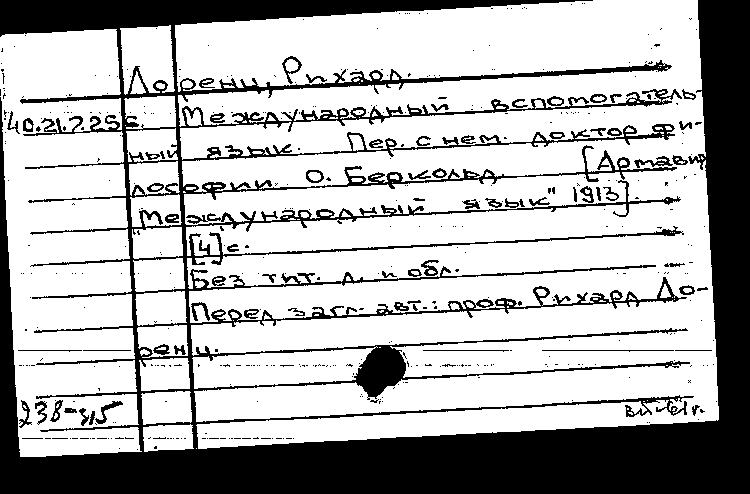 Лоренц, Рихард.
40.21.7.256. Международный вспомогатель-
ный язык. Пер. с нем. доктор фи-
лософии О. Беркольд. [Армавир
"Международный язык", 1913].
[4] с.
Без тит. л. и обл.
Перед загл. авт.: проф. Рихард Ло-
ренц.
238-